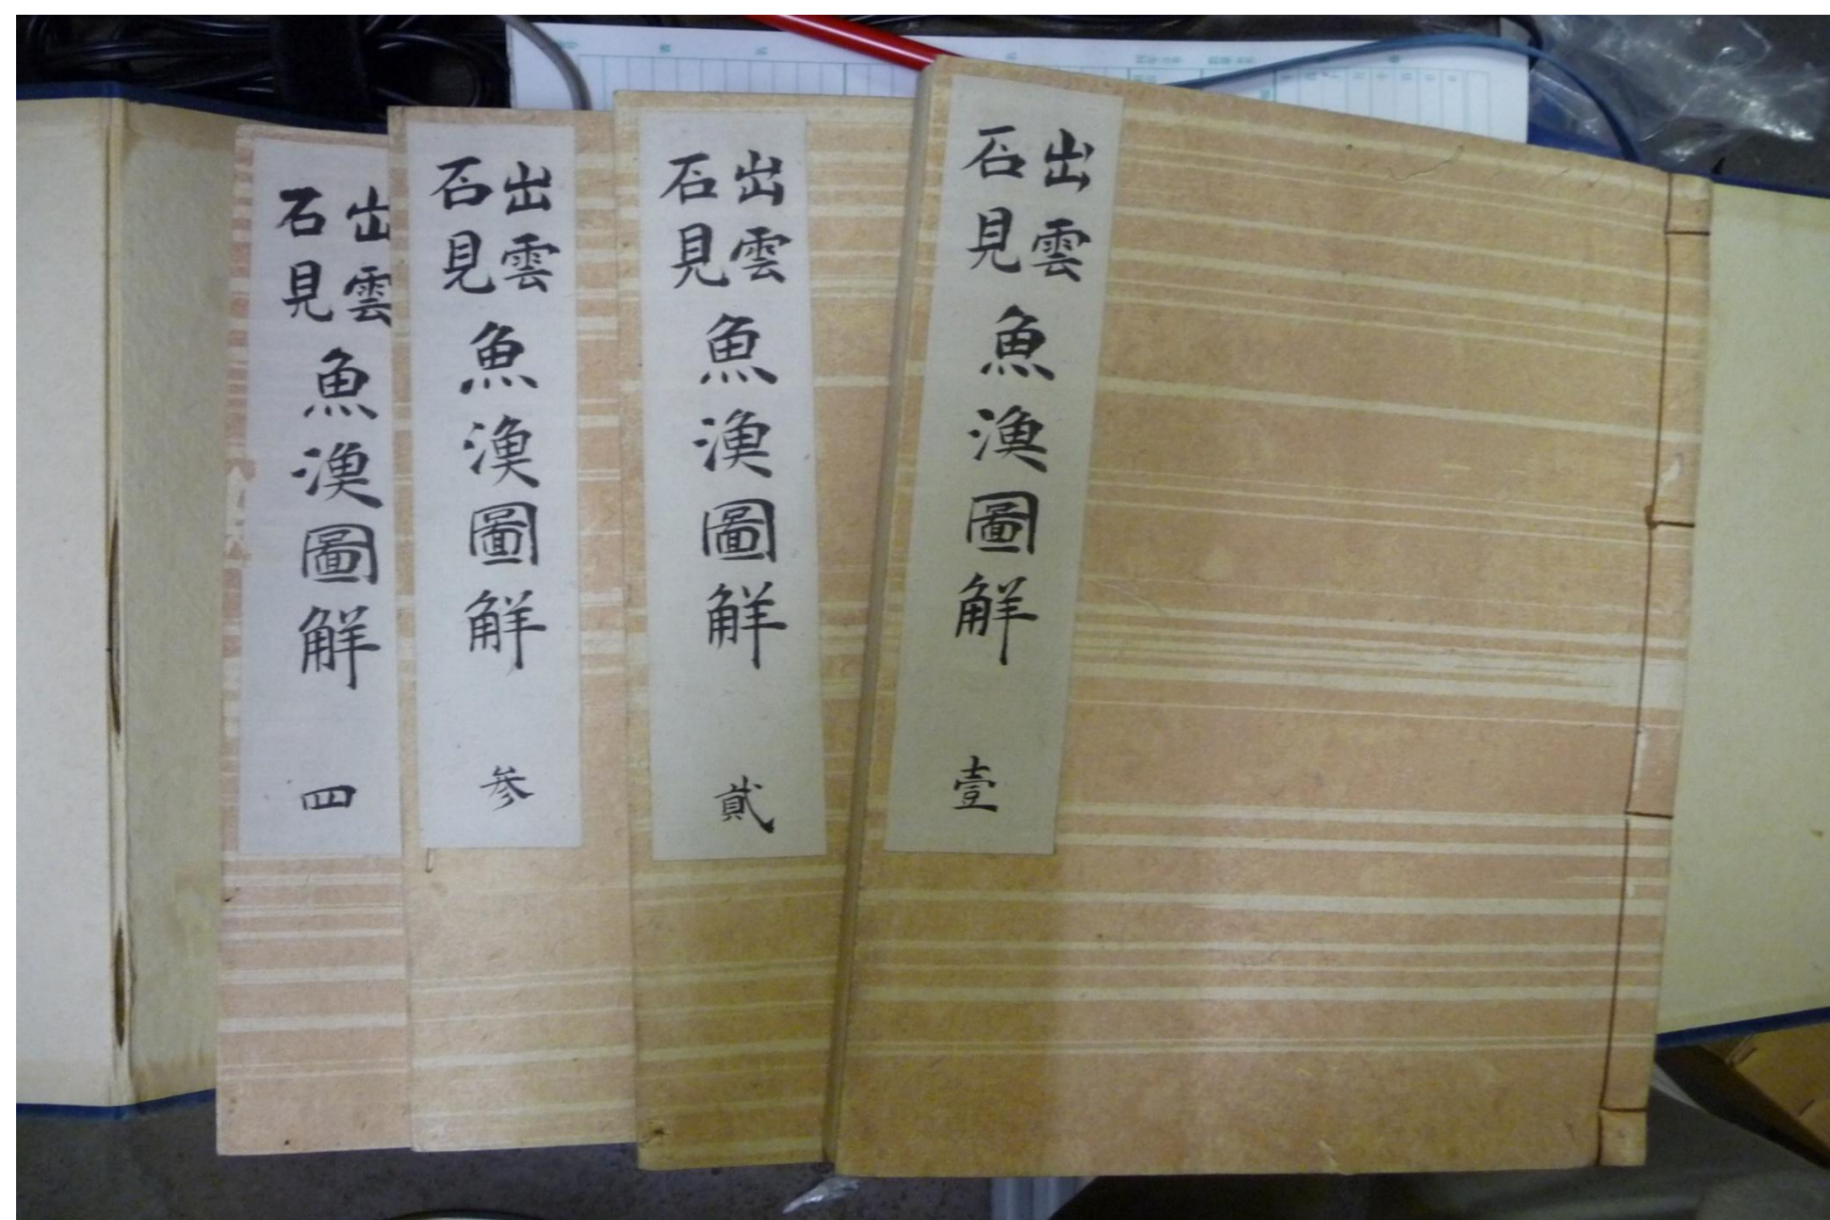 出雲
石見
魚漁圖解
壹
出雲
石見
魚漁圖解
貳
出雲
石見
魚漁圖解
参
出雲
石見
魚漁圖解
四